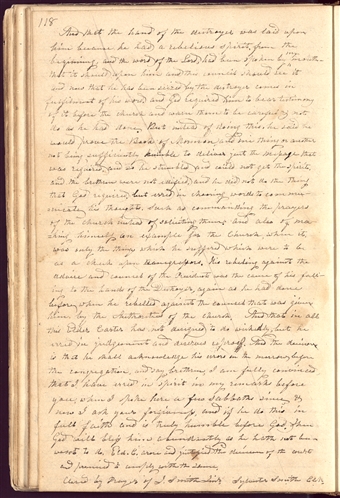 118
And that the hand of the destroyer was laid upon
him because he had a rebelious spirit from the
beginning, and the word of the Lord had been spoken by mouth
that it should upon him and this council should see it
and now that he has been seized by the destroyer comes in
fulfilment of his word and God required him to bear testimony
of it before the church and warn them to be careful & not
do as he had done. But instead of doing this, he said he
would prove the Book of Mormon, and one thing or another
not being sufficiently humble to deliver just the message that
was required, and so he stumbled and could not get the spirit
and the brethren were not edified, and he did not do the thing
that God required but erred in chosing words to commu-
nicate his thoughts, such as commanding the prayers
of the church instead of soliciting them, and also of ma-
king himself an example for the Church, when it
was only the thing which he suffered which were to be
as a check upon transgressors. His rebeling against the
advice and counsel of the President was the cause of his fall-
ing to the hands of the Destroyer, again as he had done
before, when he rebelled against the counsel that was given
him by the authorities of the church. And that in all
this Elder Carter has not designed to do wickedly, but he
erred in judgement and deserves reproof. And the decision
is that he shall acknowledge his errors on the morrow, before
the congregation, and say, brethren, I am fully convinced
that I have erred in spirit in my remarks before
you, when I spake here a few sabbaths since, &
now I ask your forgiveness, and if he do this in
full faith and is truly humble before God, then
God will bless him abundantly as he hath not been
wont to do. Eld. C. arose and justified the decision of the court
and promised to comply with the same.
Closed by Prayer of J. Smith Jun. Sylvester Smith Clk.